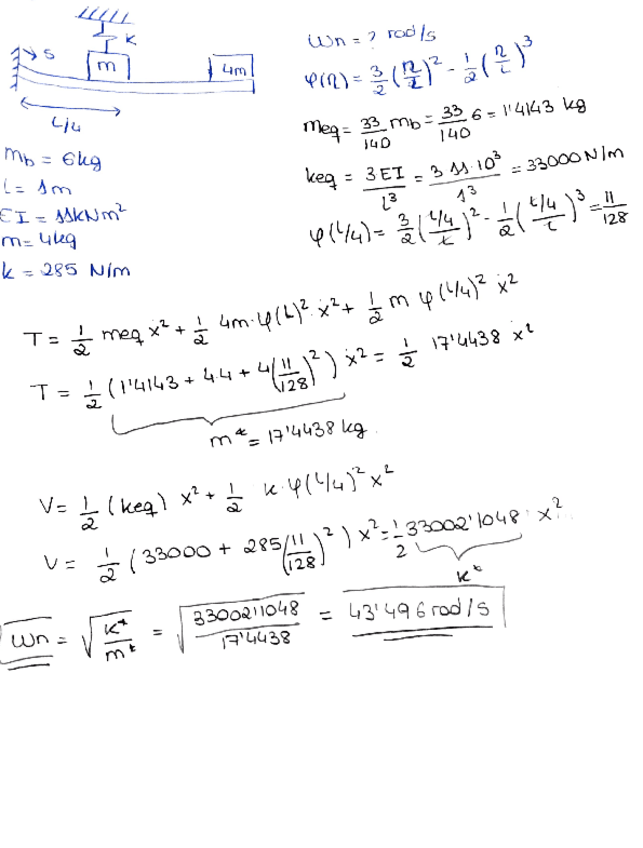 K
S
m
4m
L/4
mb = 6kg
L = 1m
EI = 11kNm²
m = 4kg
k = 285 N/m
Wn = ? rad/s
φ(η) = 3/2 (η/L)² - 1/2 (η/L)³
meq = 33/140 mb = 33/140 6 = 1'4143 kg
keq = 3EI/L³ = 3 11·10³/1³ = 33000 N/m
φ(L/4) = 3/2 (L/4/L)² - 1/2 (L/4/L)³ = 11/128
T = 1/2 meq ẋ² + 1/2 4m·φ(L)² ẋ² + 1/2 m φ(L/4)² ẋ²
T = 1/2 (1'4143 + 4·4 + 4(11/128)²) ẋ² = 1/2 17'4438 ẋ²
m* = 17'4438 kg.
V = 1/2 (keq) x² + 1/2 k·φ(L/4)² x²
V = 1/2 (33000 + 285(11/128)²) x² = 1/2 33002'1048 x²
k*
Wn = √(k*/m*) = √(33002'1048/17'4438) = 43'496 rad/s